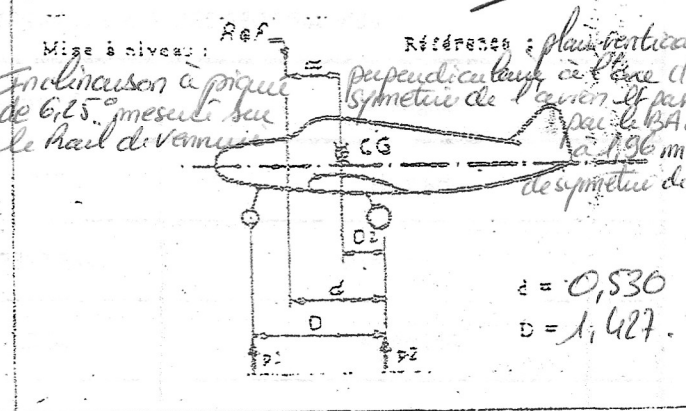 Mise à niveau :
Inclinaison à piquer
de 6,25° mesuré sur
le Rail de verrière
Ref
Référence : plan vertical
perpendiculaire à l'axe
symétrie de l'avion et
par le BA
à 1,96 m
de symétrie de
=
CG
D2
d
D
P1
P2
d = 0,530
D = 1,427.